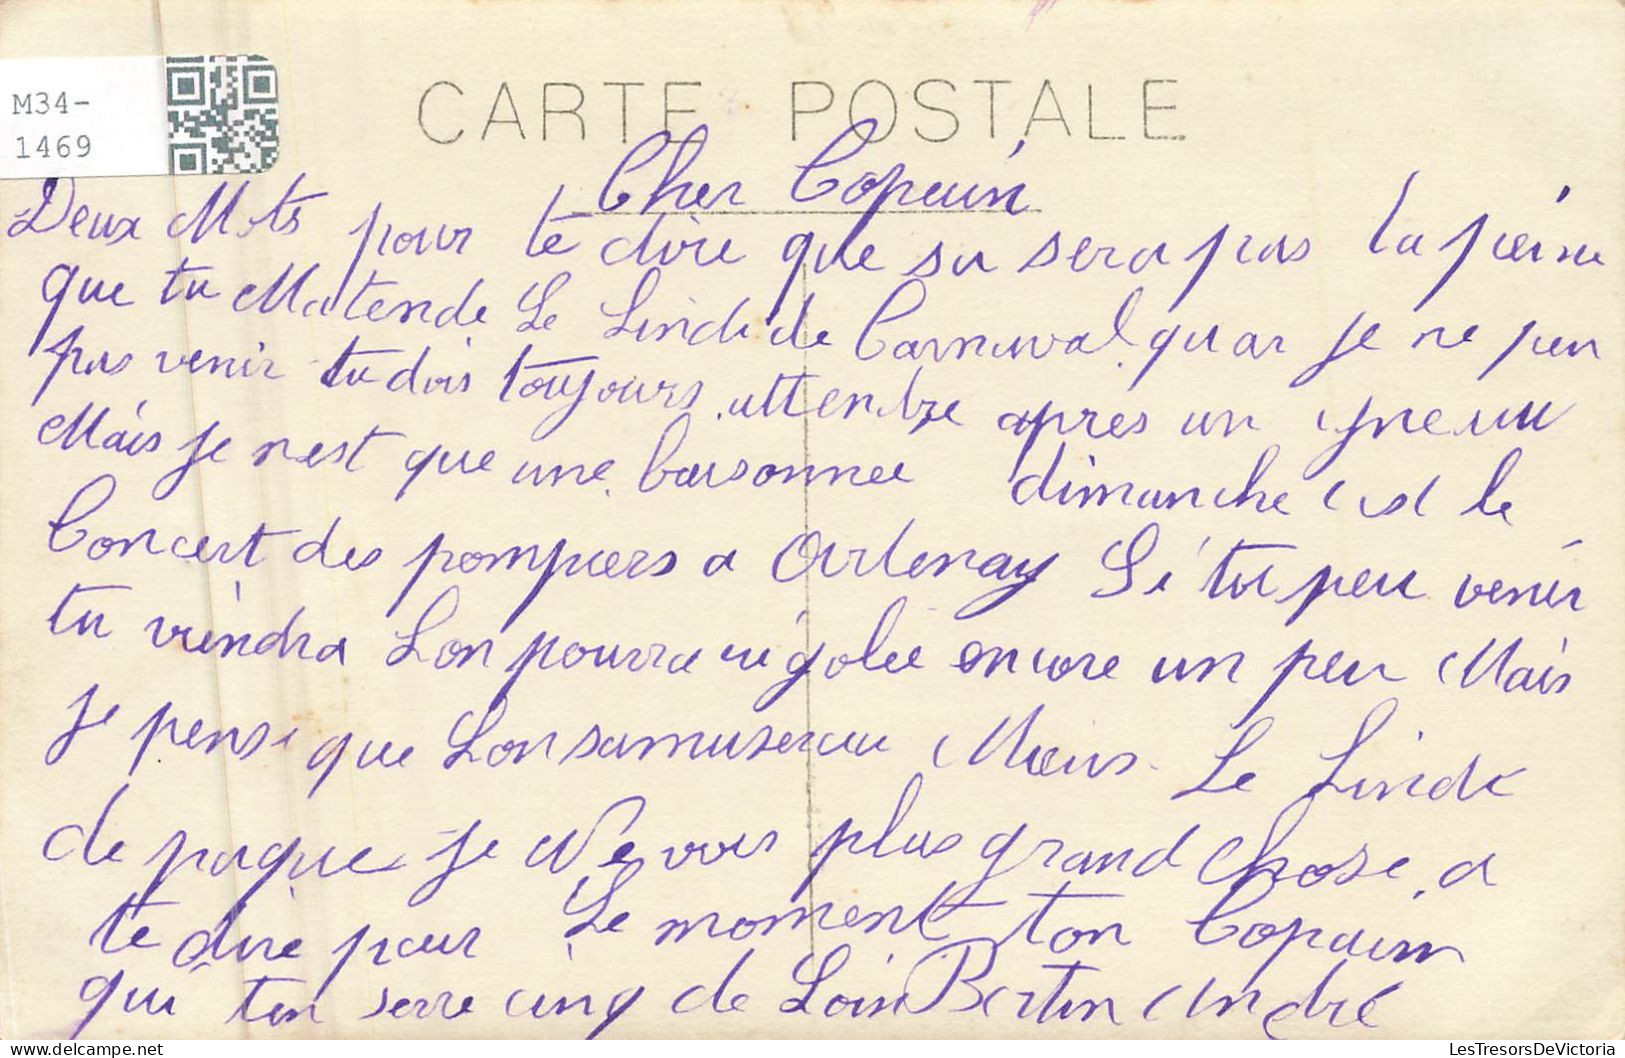 M34-
1469
CARTE POSTALE
Cher Copain
Deux Mots pour te dire que sa sera pas la peine
que tu Matende Le Lindi de Carnaval quar je ne peu
pas venir tu dois toujours attendre apres un
Mais je nest que une dimanche est le
Concert des pompiers a Artenay Si tu peu venir
tu viendra Lon pourra rigolée encore un peu Mais
je pense que Lon samusera Mieus Le Lindi
de paque je Ne vois plus grand Chose a
te dire pour Le moment ton Copain
qui ten serre cinq de Loin Bertin André
LesTresorsDeVictoria